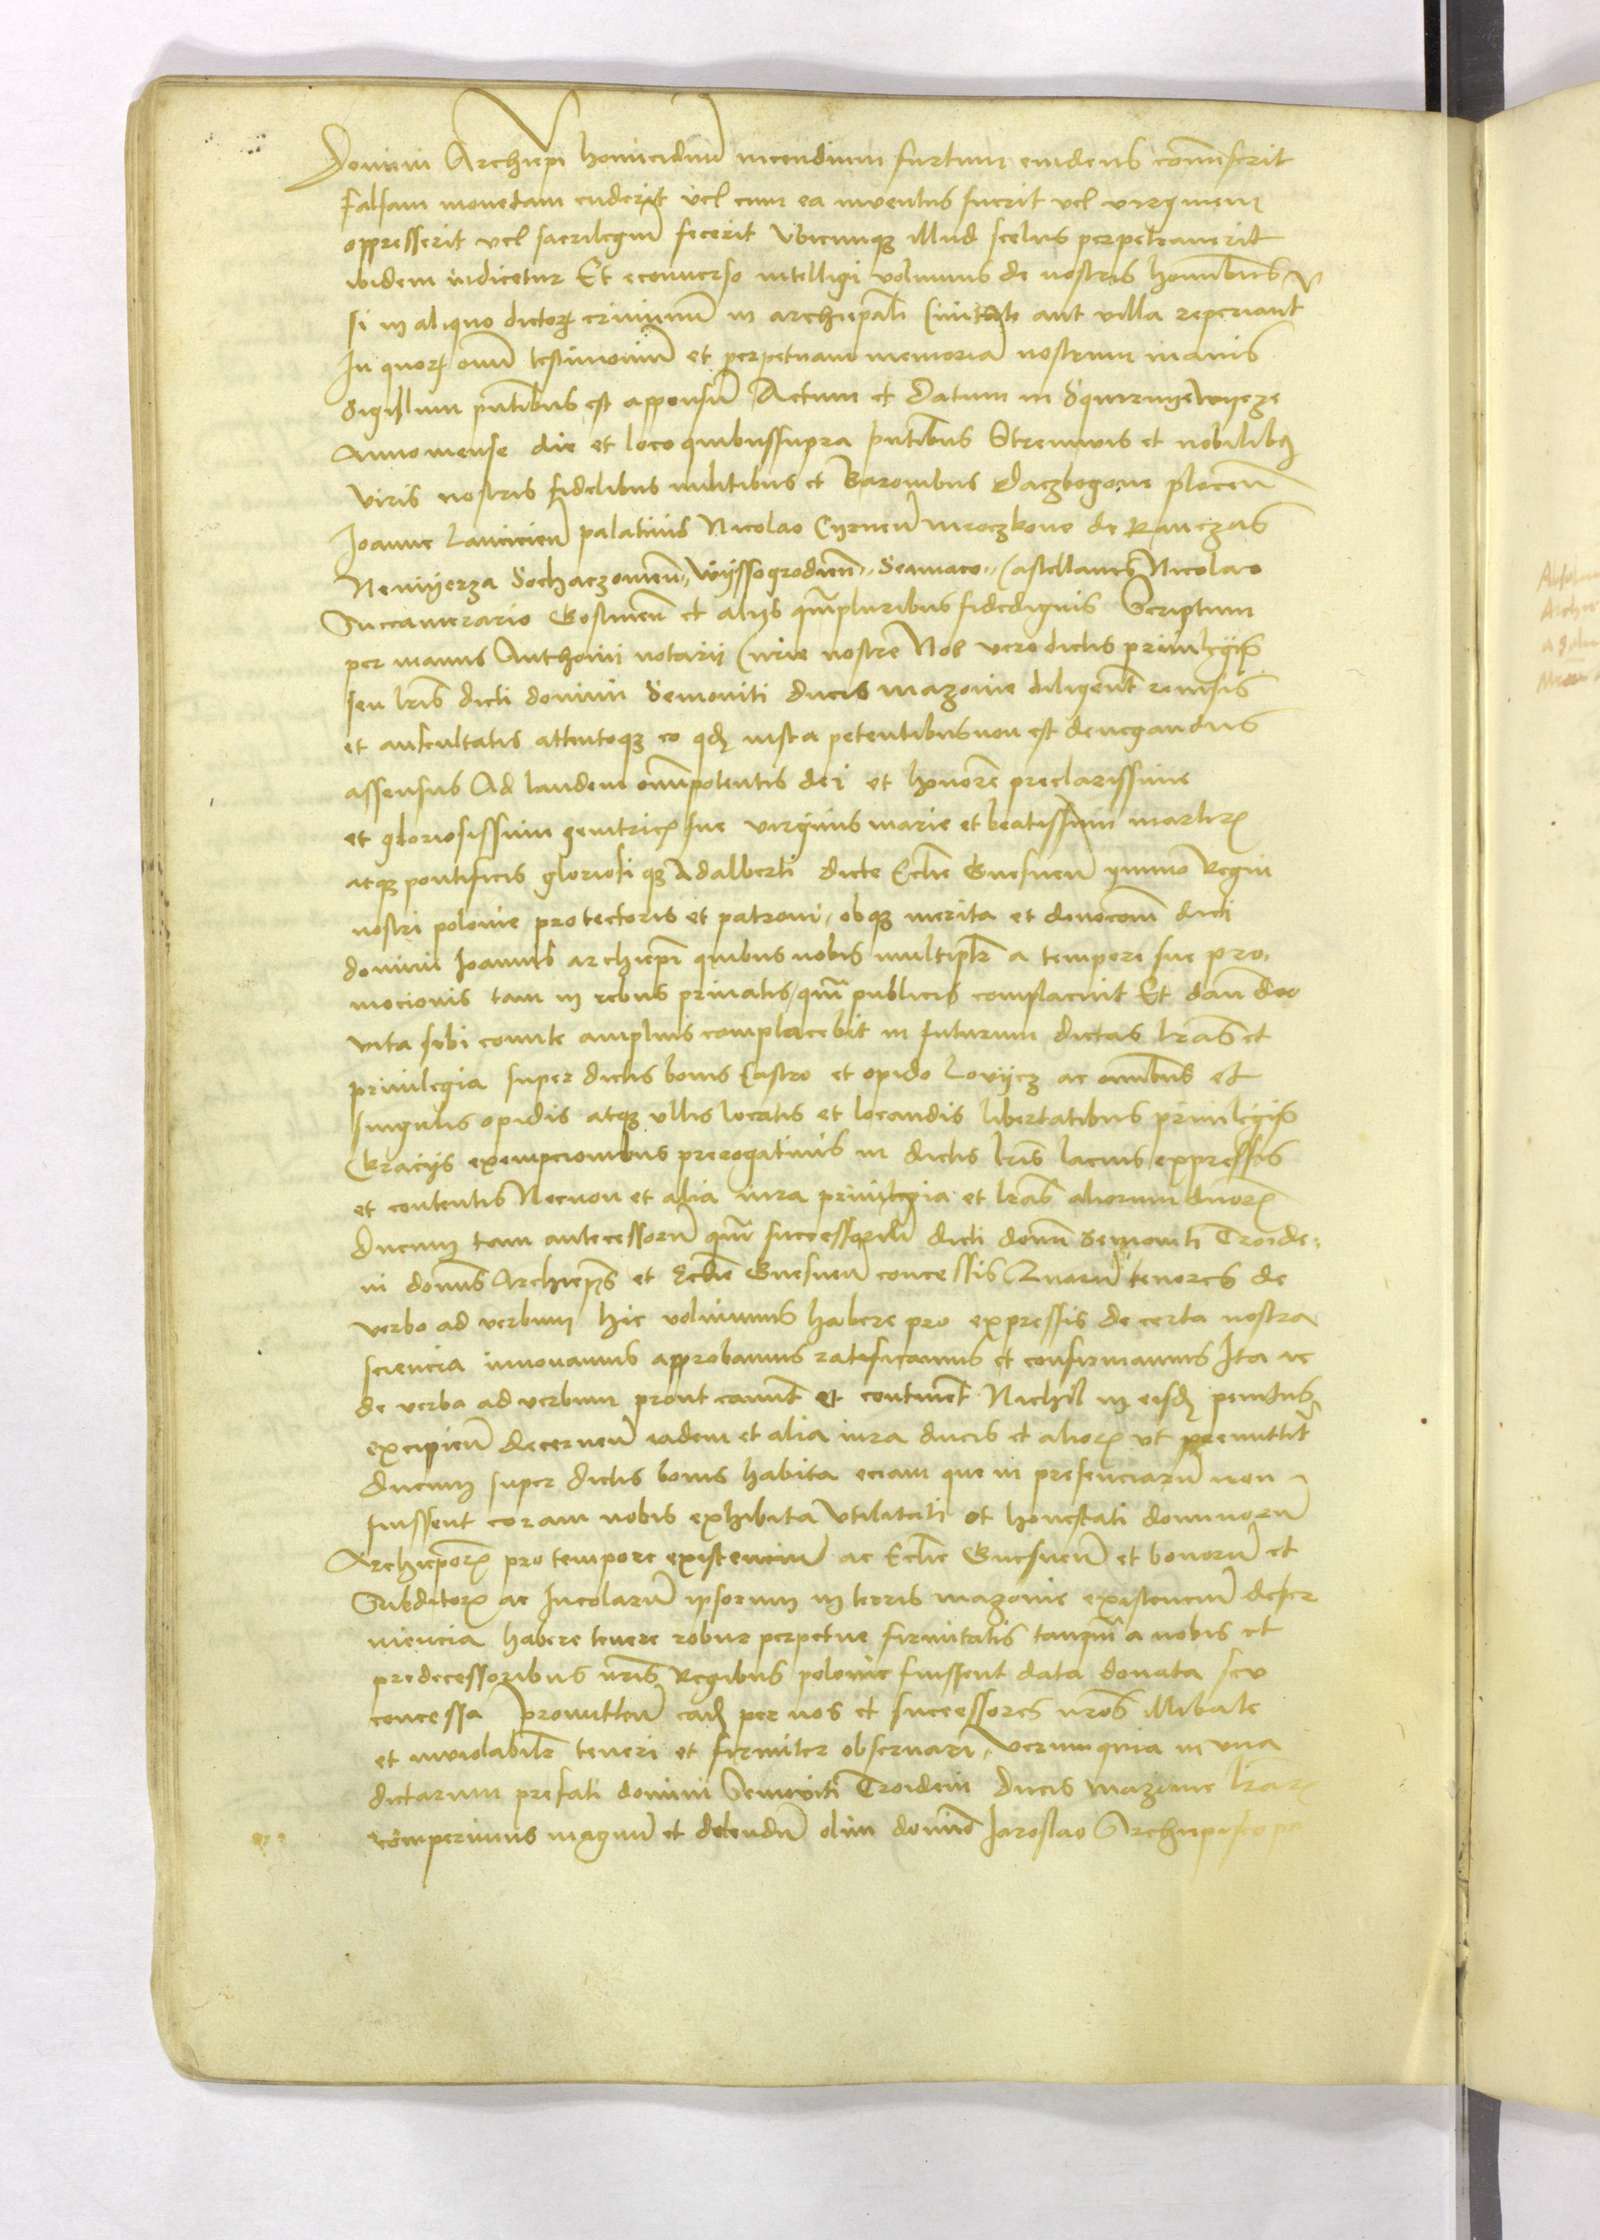 Domini Archiepi homicidium incendium furtum evidens comiserit
falsam monetam cuderit vel cum ea inventus fuerit vel virginem
oppresserit vel sacrilegium fecerit Vbicunqz illud scelus perpetraverit
ibidem iudicetur Et econverso intelligi volumus de nostris hominibus
si in aliquo dictorum criminum in archiepali Civitate aut villa reperiant
In quorum omium testimonium et perpetuam memoriam nostrum maius
Sigillum pntibus est appensum Actum et Datum in
Anno mense die et loco quibussupra pntibus Strenuis et nobilibus
viris nostris fidelibus militibus et Baronibus Daczbogone plocen
Joanne Lancicien palatinis Nicolao Cyrnen Mroczkone de
Nemyerza Sochaczovien, Wyssogrodien, Castellanis Nicolao
Succamerario Gostinen et alys qmpluribus fidedignis Scriptum
per manus Anthonii notarii Curie nostre Nos vero dictis privilegys
seu lris dicti domini Semoviti ducis mazovie diligent revisis
et auscultatis attentoqz eo qd iusta petentibus non est denegandus
assensus Ad laudem omipotentis dei et honorem preclarissime
et gloriosissime genitricis sue virginis marie et beatissimi martiris
atqz pontificis gloriosi qz Adalberti dicte Eclie Gnesnen ymmo Regni
nostri polonie protectoris et patroni, obqz merita et devocom dicti
domini Joannis archiepi quibus nobis multiplr a tempore sue pro,
mocionis tam in rebus privatis, qm publicis complacuit Et dan deo
vita sibi comite amplius complacebit in futurum dictas lras et
privilegia super dictis bonis Castro et opido Lovycz ac omibus et
singulis opidis atqz villis locatis et locandis libertatibus privilegys
Gracys exempcionibus prerogativis in dictis lris lacius expressis
et contentis Necnon et alia iura privilegia et lras aliorum dnorum
Ducum tam antecessorum qm successorum dicti domi Semoviti Troide,
ni domis Archiepis et Eclie Gnesnen concessis Quarum tenores de
verbo ad verbum hic volumus habere pro expressis de certa nostra
sciencia innovamus approbamus ratificamus et confirmamus Ita ac
de verbo ad verbum prout canunt et continent Nichil in eisd penitus
excipien decernen eadem et alia iura ducis et aliorum ut premittit
ducum super dictis bonis habita eciam que in presenciarum non
fuissent coram nobis exhibita Vtilitati et honestati dominorum
Archieporum pro tempore existencium ac Eclie Gnesnen et bonorum et
Subditorum ac Incolarum ipsorum in terris mazovie existencium deser
viencia habere tenere robur perpetue firmitatis tanqm a nobis et
predecessoribus nris Regibus polonie fuissent data donata seu
concessa promitten ead per nos et successores nros illibate
et inviolabilr teneri et firmiter observari, Verum quia in una
dictarum prefati domini Semoviti Troideni Ducis mazovie lrarum
comperimus magnum et detendum olim domino Jaroslao Archiepiscopo